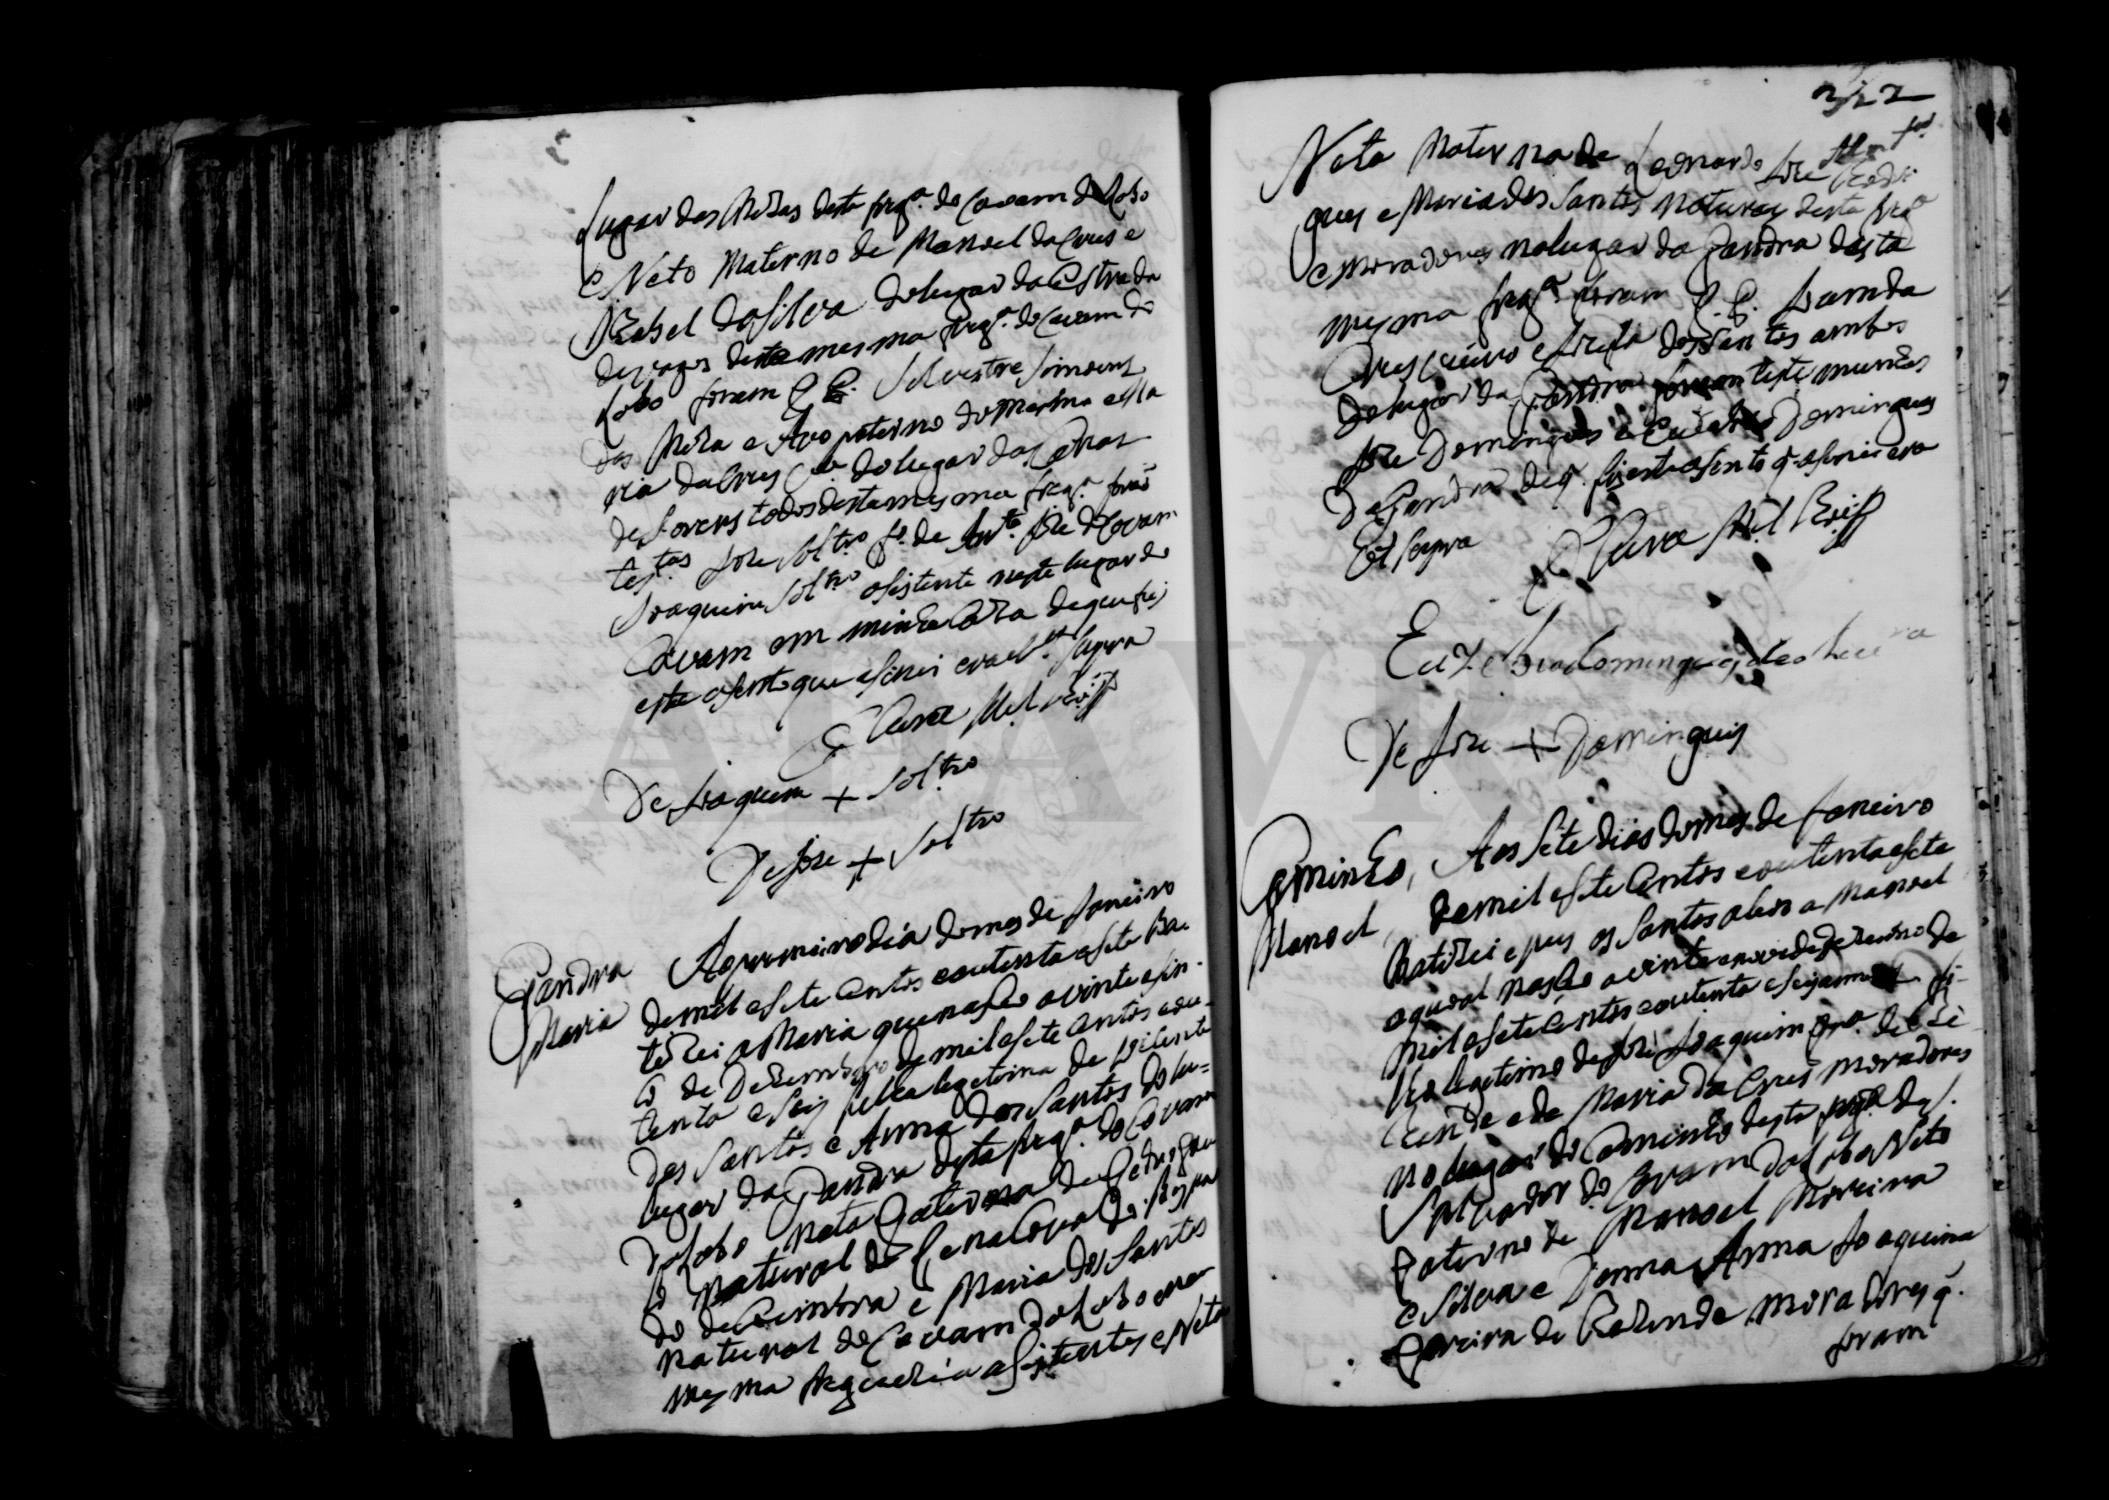 Lugar das Mesas desta fregª. de Covam do Lobo
e Neto Materno de Manoel da Crus e
Izabel da Silva do lugar da Estrada
de vagos desta mesma fregª. de Covam do
Lobo foram P. P. Silvestre Simoens
das Mesa e Avo paterno do mesmo e Ma
ria da Crus do lugar das
de todos desta mesma fregª. foraõ
testas. Joze Soltro. fº. de Antº. Joze de Covam
Joaquim Soltro asistente neste lugar de
Covam em minha Caza de que fis
este asento que asinei era ut supra
O Cura Mel.
De Joaquim + Soltro
De Joze + Soltro
Gandra
Maria
Ao primeiro dia do mes de Janeiro
de mil e sete Centos e outenta e sete Ba
tizei a Maria que nasceo a vinte e sin
co de Dezembro de mil e sete Centos e ou-
tenta e seis filha legetima de Vicente
dos Santos e Anna dos Santos do lu-
lugar da Gandra desta fregª. de Covam
do Lobo Neta Paterna de
natural de Penacova do Bispa
do de Coimbra e Maria dos Santos
natural de Covam do Lobo e na
mesma freguezia asistentes e Neta
322
Neta Materna de Leonardo Joze Rodri
gues e Maria dos Santos naturaes desta fregª
e moradores no lugar da Gandra desta
mesma fregª. foram P. P.
e Josefa dos Santos ambos
do lugar da Gandra foram testemunhas
Joze Domingues e Euzebio Domingues
da Gandra de q. fis este asento q. asinei era
ut supra
O Cura Mel.
Euzebio domingues
De Joze + Domingues
Caminho,
Manoel,
Aos sete dias do mes de Janeiro
de mil e sete Centos e outenta e sete
Batizei e pus os Santos oleos a Manoel
o qual nasceo a vinte e nove de Dezembro de
mil e sete Centos e outenta e seis fi-
lho legetimo de Joze Joaquim Prª. de Re
zende e de Maria da Crus moradores
no lugar do Caminho desta fregª. de S.
Salvador de Covam do Lobo Neto
Paterno de Manoel Moreira
e Silva e Donna Anna Joaquina
Pereira de Rezende moradores q.
foram